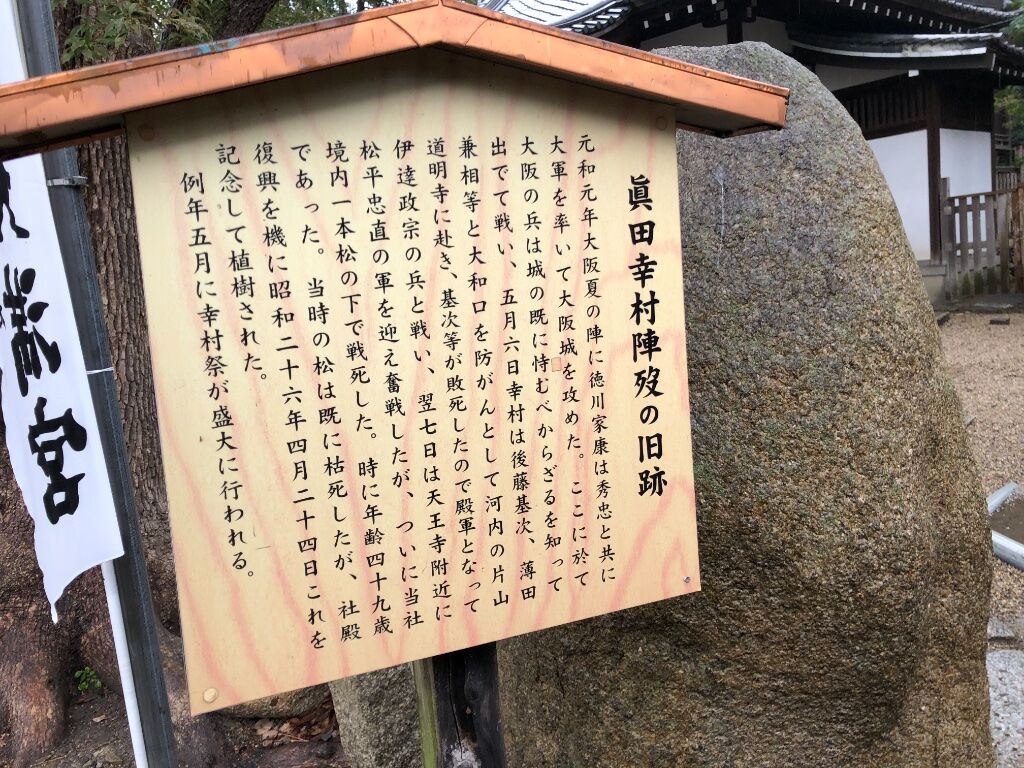 眞田幸村陣歿の旧跡
元和元年大阪夏の陣に徳川家康は秀忠と共に
大軍を率いて大阪城を攻めた。ここに於て
大阪の兵は城の既に恃むべからざるを知って
出でて戦い、五月六日幸村は後藤基次、薄田
兼相等と大和口を防がんとして河内の片山
道明寺に赴き、基次等が敗死したので殿軍となって
伊達政宗の兵と戦い、翌七日は天王寺附近に
松平忠直の軍を迎え奮戦したが、ついに当社
境内一本松の下で戦死した。時に年齢四十九歳
であった。当時の松は既に枯死したが、社殿
復興を機に昭和二十六年四月二十四日これを
記念して植樹された。
例年五月に幸村祭が盛大に行われる。
宮